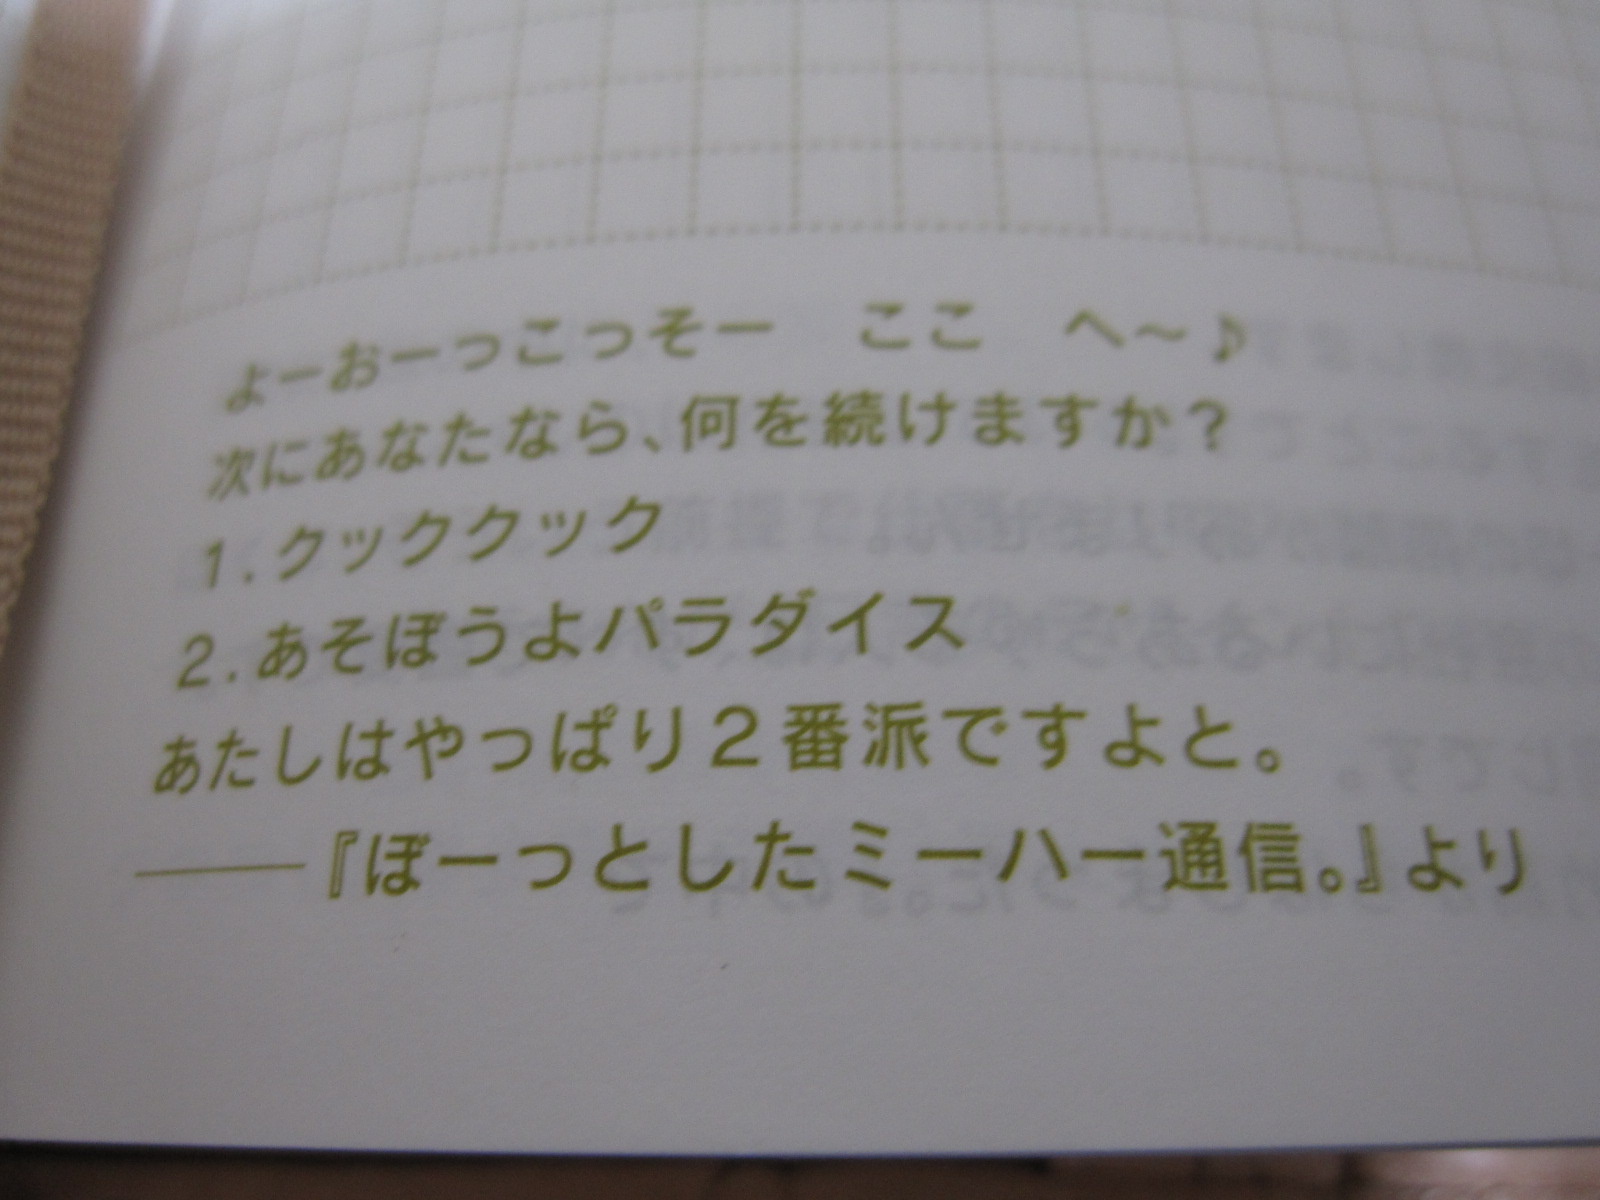 よーおーっこっそー　ここ　へ〜♪
次にあなたなら、何を続けますか？
1.クッククック
2.あそぼうよパラダイス
あたしはやっぱり２番派ですよと。
――『ぼーっとしたミーハー通信。』より